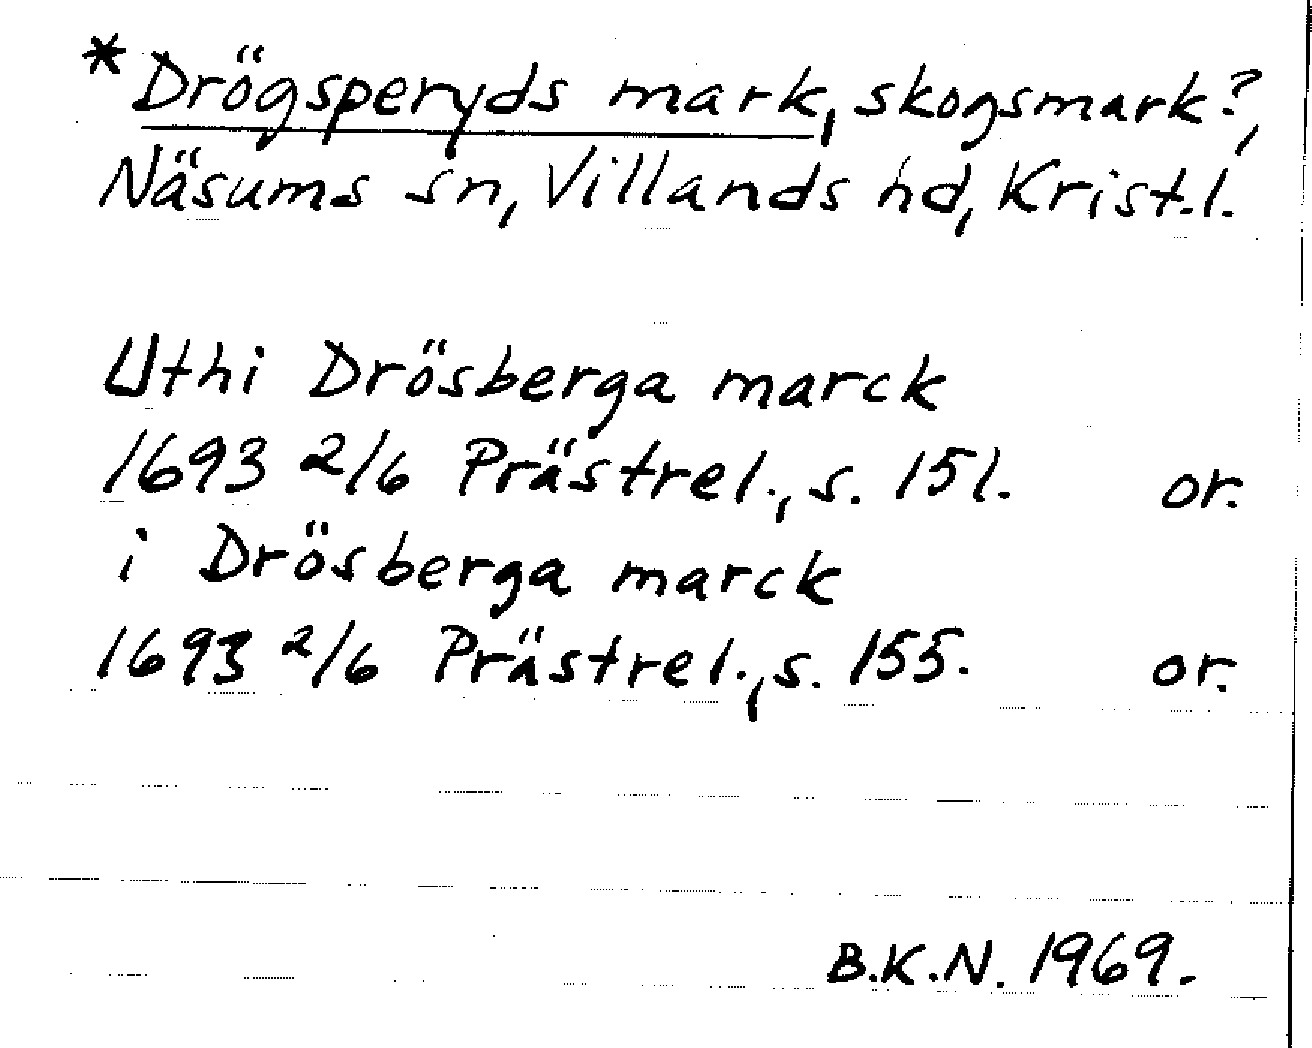 *Drögsperyds mark, skogsmark?,
Näsums sn, Villands hd, Krist.l.
Uthi Drösberga marck
1693 2/6 Prästrel., s. 151. or.
i Drösberga marck
1693 2/6 Prästrel., s. 155. or.
B.K.N. 1969.